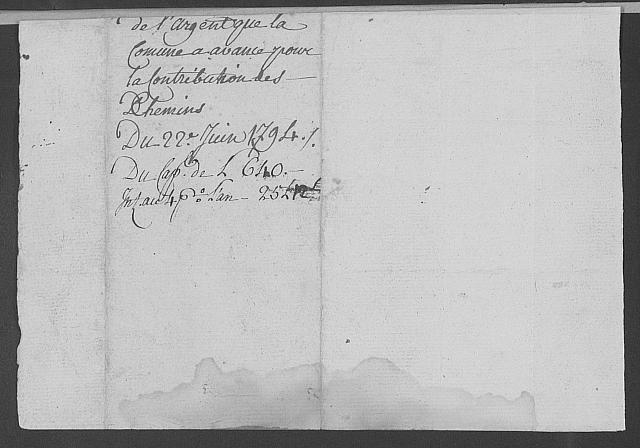 de l'argent que la
Comune a avancé pour
la Contribution des
Chemins
Du 22.e Juin 1794./.
Du Cap.l de L 640.-
Int. au 4 p.o l'an - 25